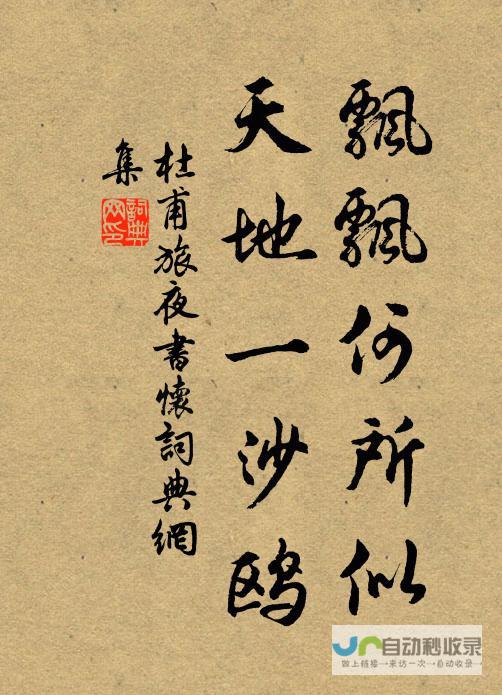 飄飄何所似
天地一沙鸥
杜甫旅夜書懷詞典網
集
詞典
网印
自动秒收录
做上链接→来访一次→自动收录